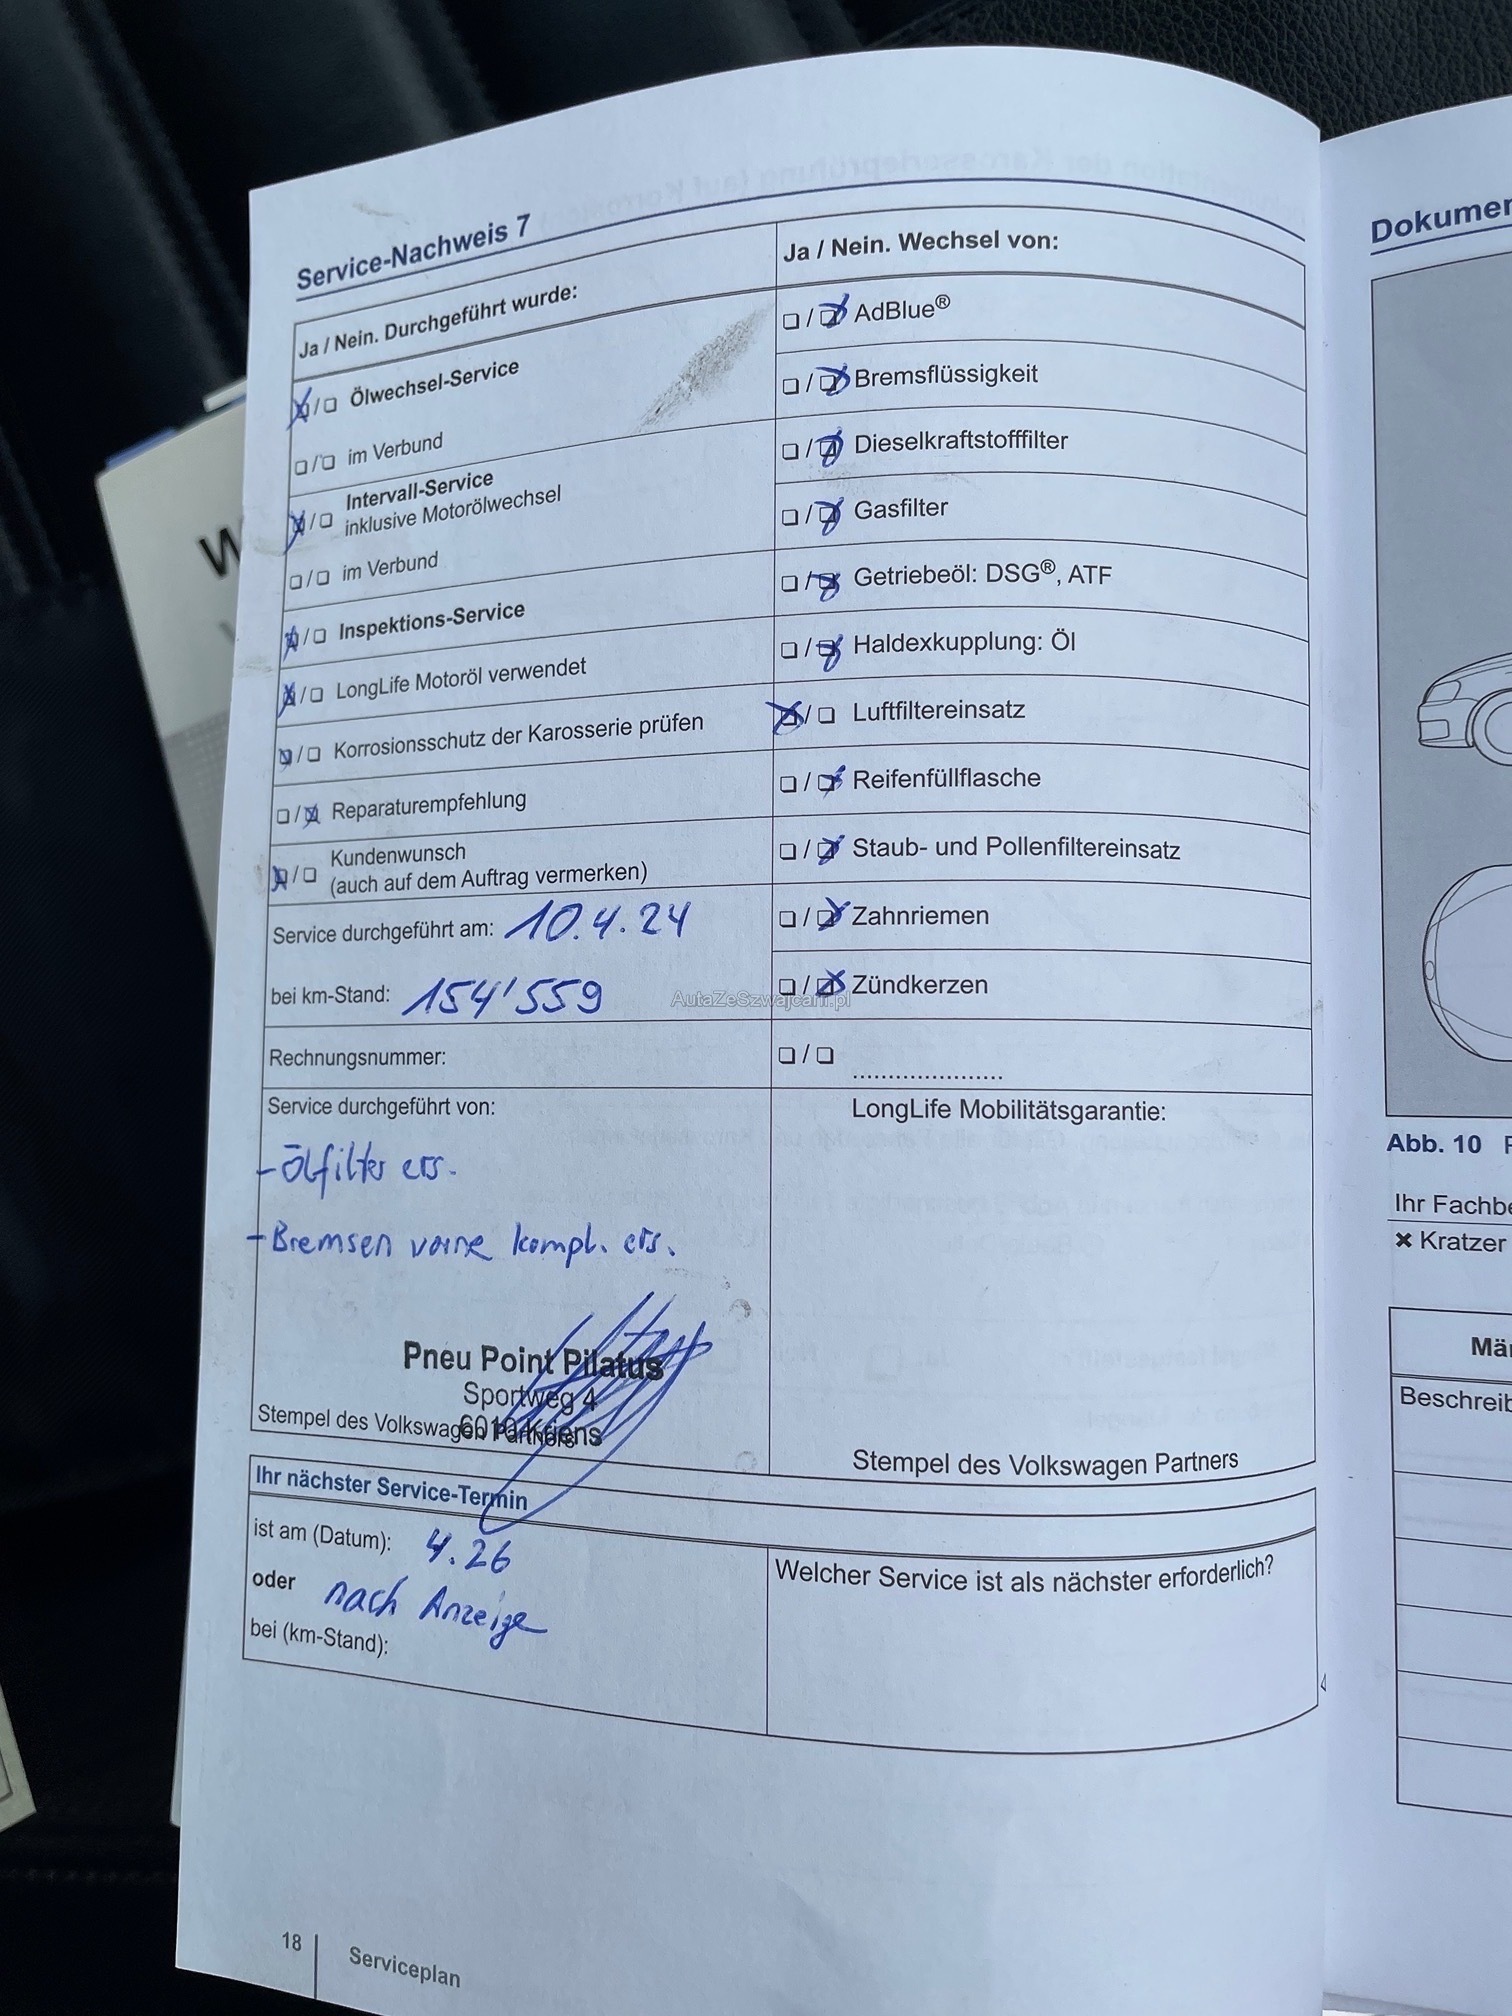 Service-Nachweis 7
Ja / Nein. Durchgeführt wurde:
❏/❏ Ölwechsel-Service
❏/❏ im Verbund
Intervall-Service
❏/❏ inklusive Motorölwechsel
❏/❏ im Verbund
❏/❏ Inspektions-Service
❏/❏ LongLife Motoröl verwendet
❏/❏ Korrosionsschutz der Karosserie prüfen
❏/❏ Reparaturempfehlung
Kundenwunsch
❏/❏ (auch auf dem Auftrag vermerken)
Service durchgeführt am: 10.4.24
bei km-Stand: 154'559
Rechnungsnummer:
Service durchgeführt von:
- Ölfilter ers.
- Bremsen vorne kompl. ers.
Pneu Point Pilatus
Sportweg 4
6010 Kriens
Stempel des Volkswagen Partners
Ja / Nein. Wechsel von:
❏/❏ AdBlue®
❏/❏ Bremsflüssigkeit
❏/❏ Dieselkraftstofffilter
❏/❏ Gasfilter
❏/❏ Getriebeöl: DSG®, ATF
❏/❏ Haldexkupplung: Öl
❏/❏ Luftfiltereinsatz
❏/❏ Reifenfüllflasche
❏/❏ Staub- und Pollenfiltereinsatz
❏/❏ Zahnriemen
❏/❏ Zündkerzen
❏/❏ .....................
LongLife Mobilitätsgarantie:
Stempel des Volkswagen Partners
Ihr nächster Service-Termin
ist am (Datum): 4.26
oder nach Anzeige
bei (km-Stand):
Welcher Service ist als nächster erforderlich?
18
Serviceplan
AutaZeSzwajcarii.pl
Dokumen
Abb. 10 F
Ihr Fachbe
✖ Kratzer
Mä
Beschreib
W